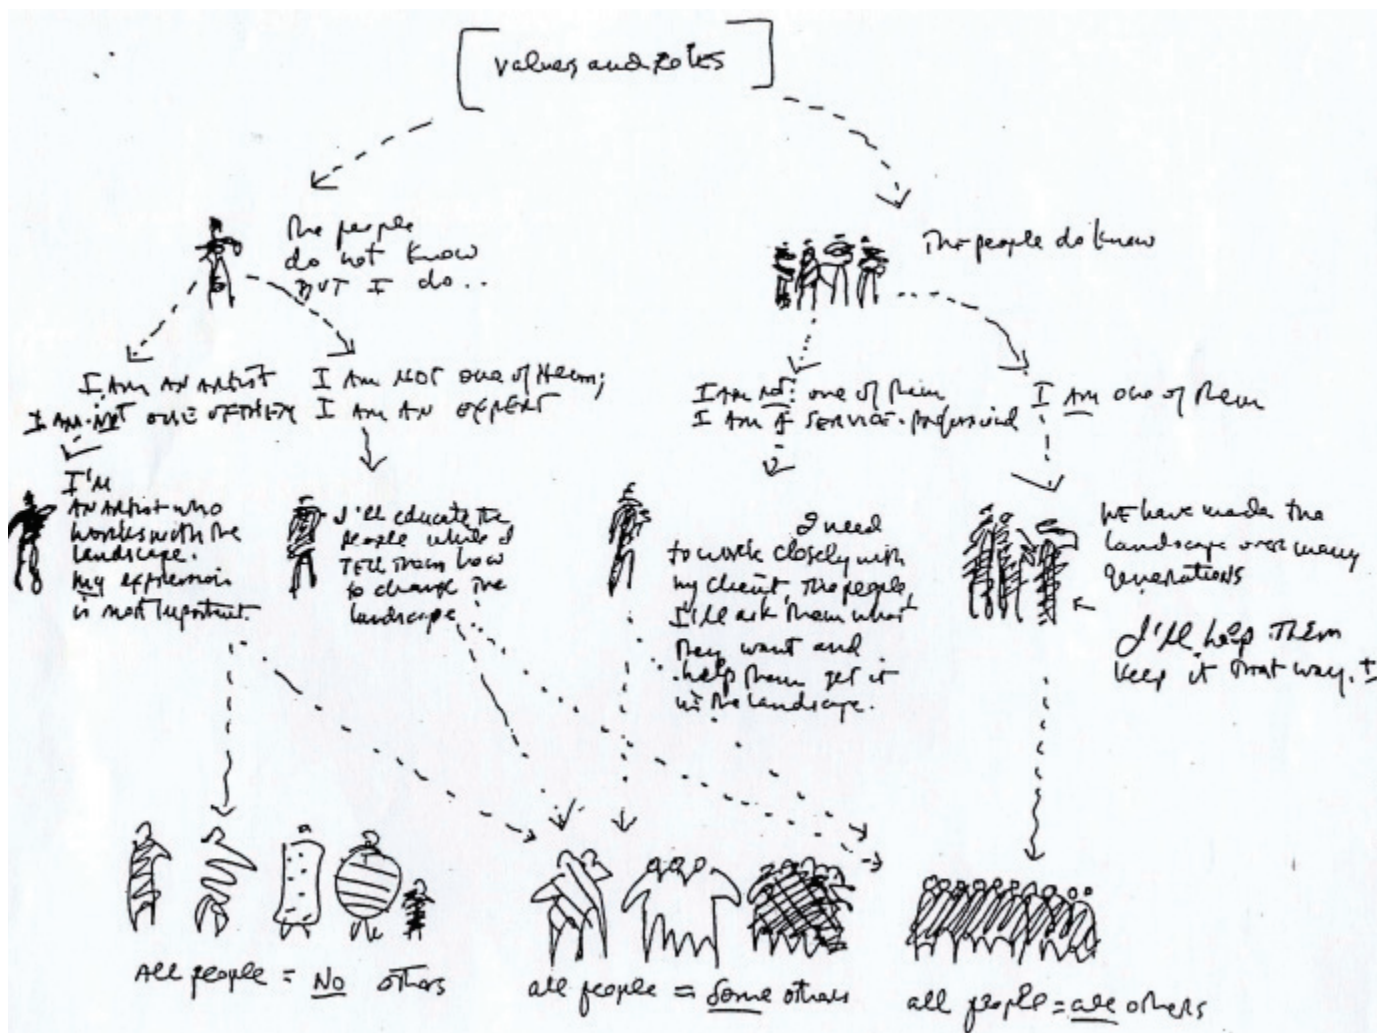 values and Roles
The people
do not know
BUT I do..
The people do know
I AM AN ARTIST
I AM NOT ONE OF THEM
I AM NOT one of them;
I AM AN EXPERT
I am not one of them
I AM A SERVICE-professional
I AM one of them
I'M
AN ARTIST who
works with the
landscape.
my expression
is most important.
I'll educate the
people while I
TELL them how
to change the
landscape
I need
to work closely with
my client, the people,
I'll ask them what
they want and
help them get it
in the landscape.
WE have made the
landscape over many
generations
I'll help Them
keep it that way.
ALL people = NO others
all people = Some others
all people = all others